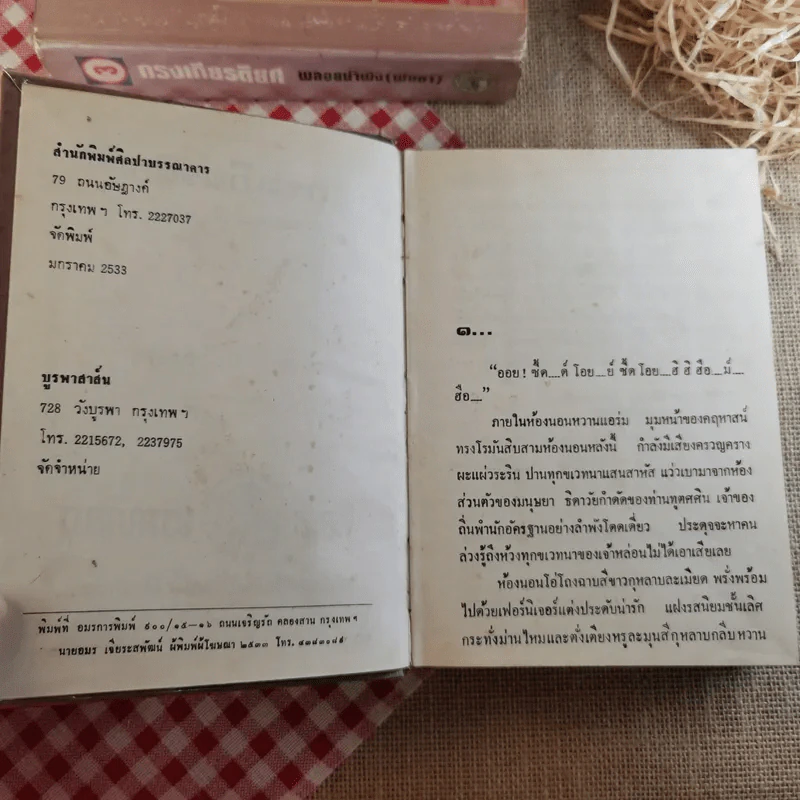 ๓ กรงเกียรติยศ พลอยน้ำผึ้ง(เพชรา)
สำนักพิมพ์ศิลปาบรรณาคาร
79 ถนนอัษฎางค์
กรุงเทพ ฯ โทร. 2227037
จัดพิมพ์
มกราคม 2533
บูรพาสาส์น
728 วังบูรพา กรุงเทพ ฯ
โทร. 2215672, 2237975
จัดจำหน่าย
พิมพ์ที่ อมรการพิมพ์ ๙๐๐/๑๕-๑๖ ถนนเจริญรัถ คลองสาน กรุงเทพ ฯ
นายอมร เจียระสพัฒน์ ผู้พิมพ์ผู้โฆษณา ๒๕๓๓ โทร. ๔๓๘๓๑๘๕
๑...
“ออย ! ซี้ด....ด์ โอย....ย์ ซี้ด โอย....ฮิ ฮิ ฮือ....ม์....
ฮือ....”
ภายในห้องนอนหวานแอร่ม มุมหน้าของคฤหาสน์
ทรงโรมันสิบสามห้องนอนหลังนี้ กำลังมีเสียงครวญคราง
ผะแผ่วระริน ปานทุกขเวทนาแสนสาหัส แว่วเบามาจากห้อง
ส่วนตัวของมนุษยา ธิดาวัยกำดัดของท่านทูตศสิน เจ้าของ
ถิ่นพำนักอัครฐานอย่างลำพังโดดเดี่ยว ประดุจจะหาคน
ล่วงรู้ถึงห้วงทุกขเวทนาของเจ้าหล่อนไม่ได้เอาเสียเลย
ห้องนอนโอ่โถงฉาบสีขาวกุหลาบละเมียด พรั่งพร้อม
ไปด้วยเฟอร์นิเจอร์แต่งประดับน่ารัก แฝงรสนิยมชั้นเลิศ
กระทั่งม่านไหมและตั่งเตียงหรูละมุนสีกุหลาบกลีบหวาน